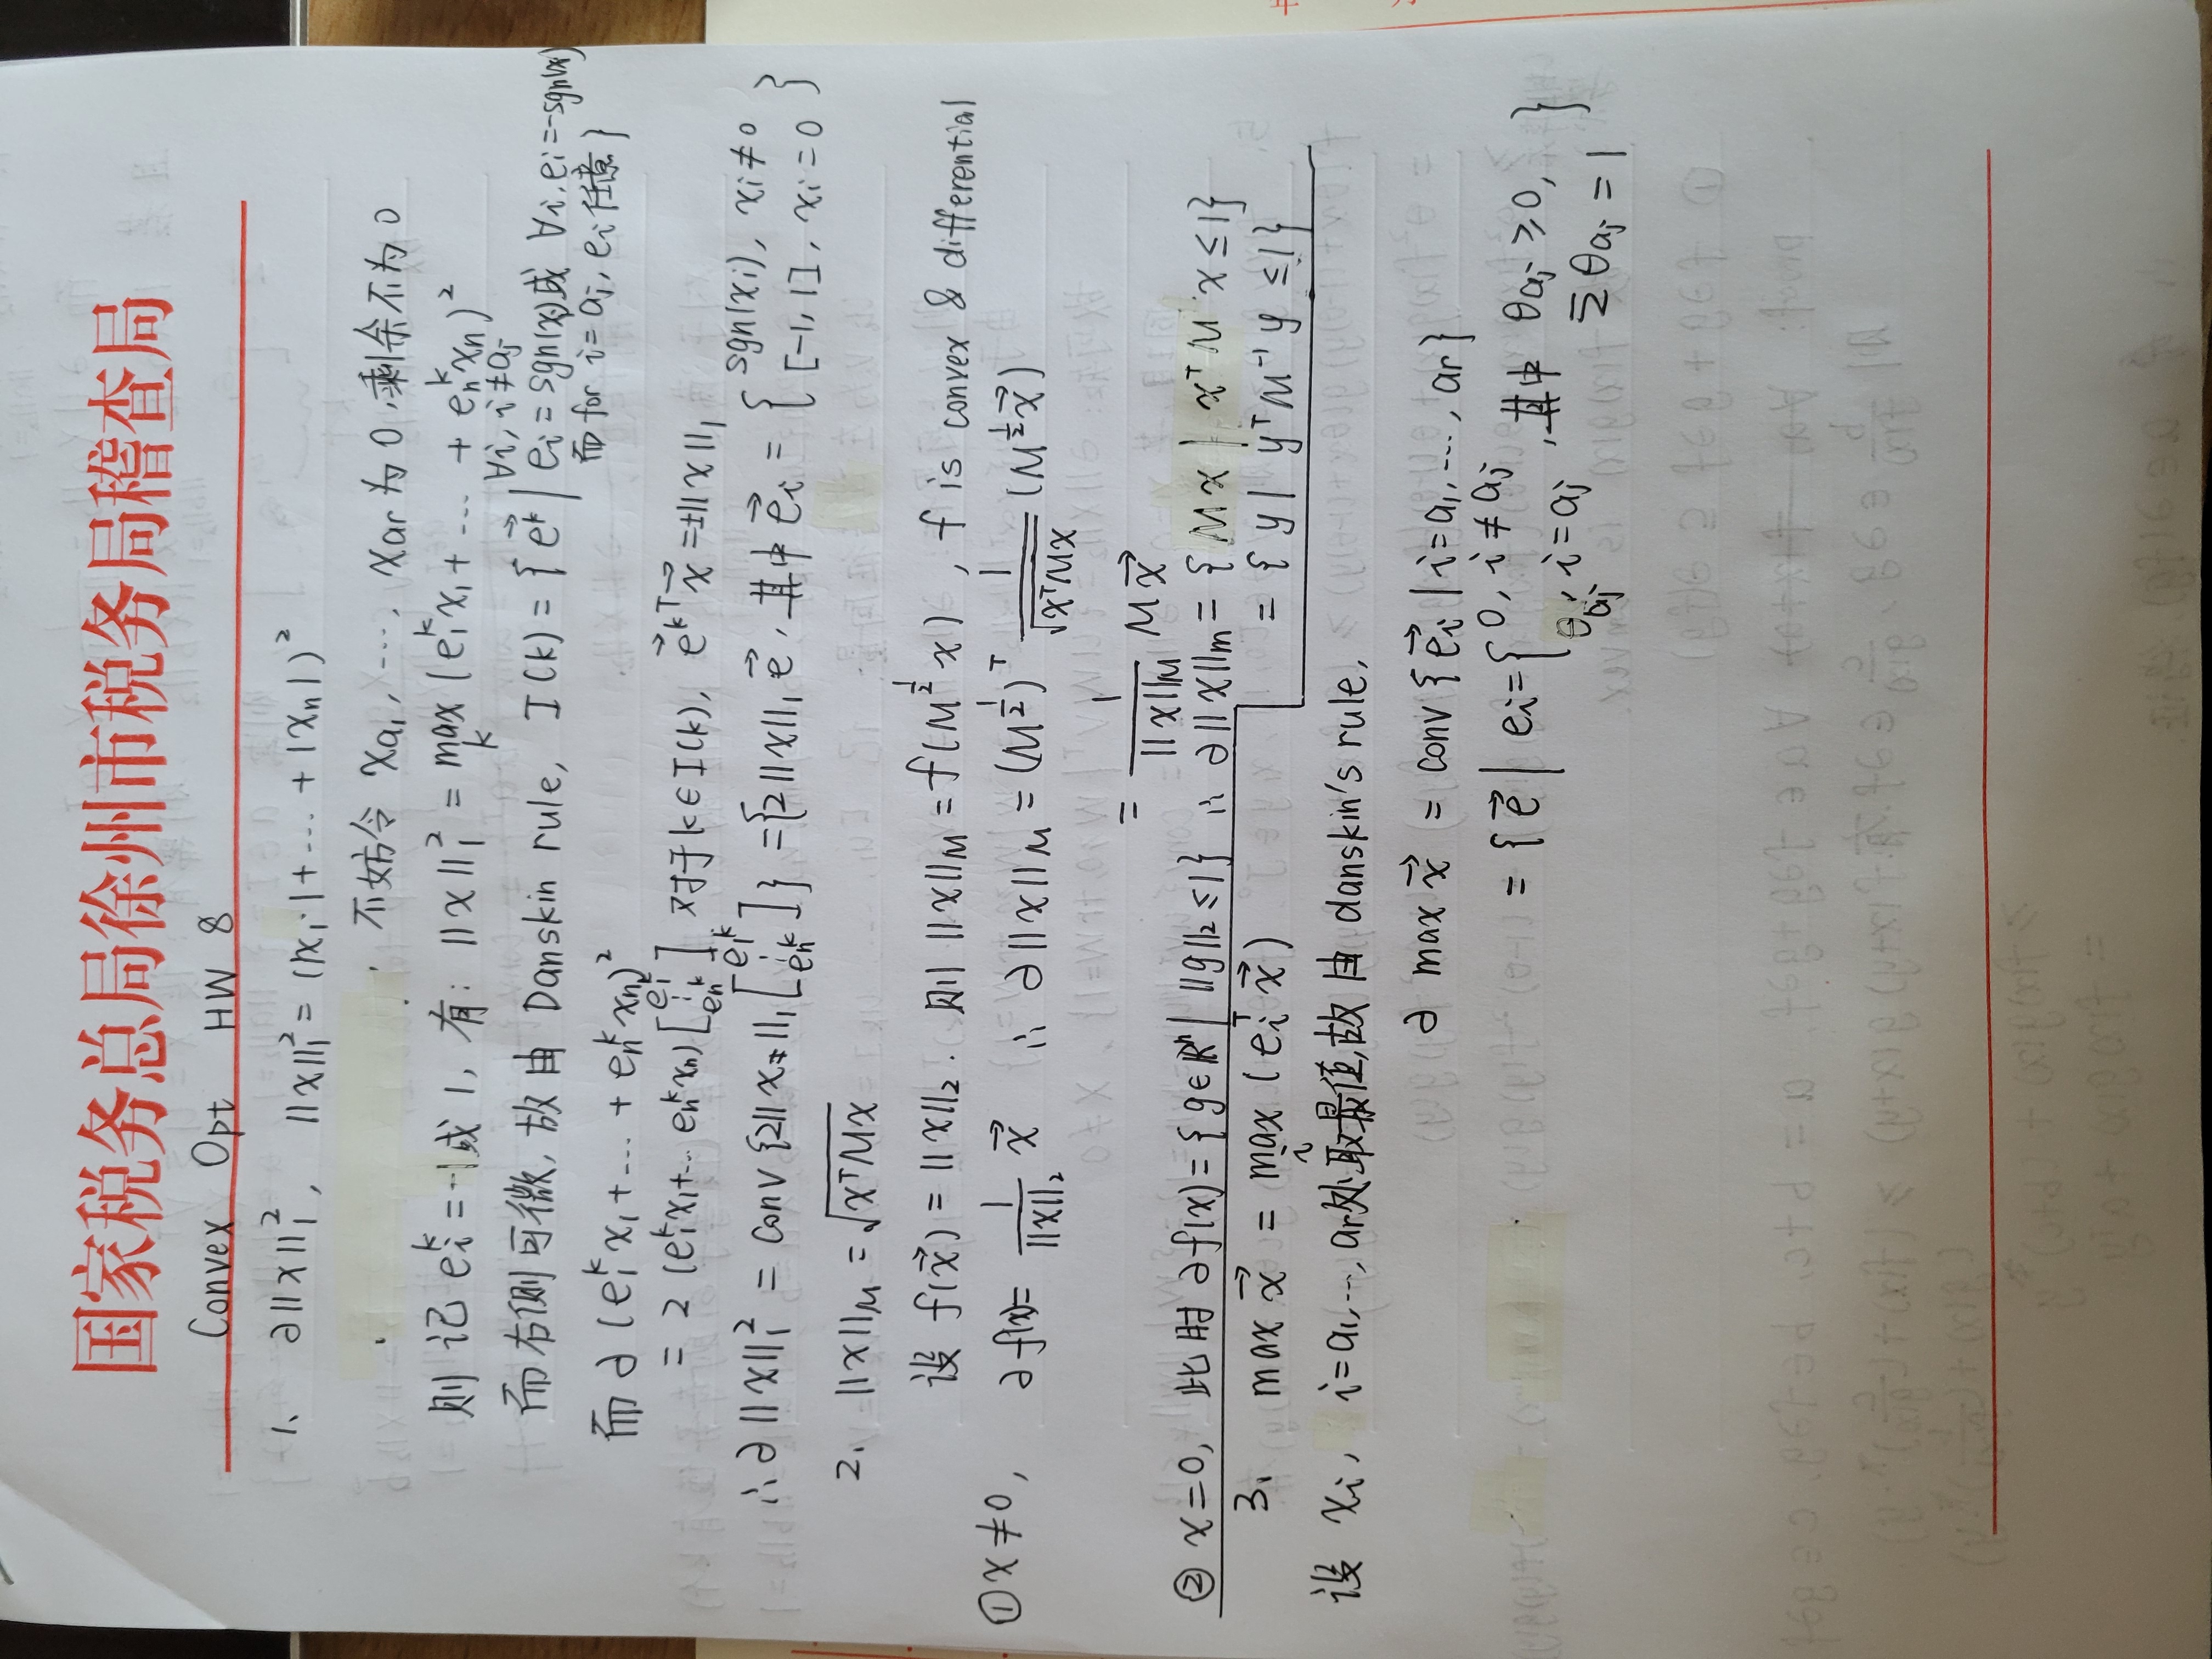 国家税务总局徐州市税务局稽查局
Convex Opt HW 8
1、 ∂||x||₁², ||x||₁² = (|x₁|+…+|xₙ|)²
不妨令 x_{a₁}, …, x_{ar} 为 0, 剩余不为 0
则 记 eᵢᵏ = -1或 1, 有: ||x||₁² = max_k (e₁ᵏx₁+ … + eₙᵏxₙ)²
而右侧可微, 故由 Danskin rule, I(k) = { e⃗ᵏ | ∀i, i≠aⱼ eᵢ = sgn(xᵢ)或 ∀i, eᵢ=-sgn(xᵢ)
而 for i = aⱼ, eᵢ 任意 }
而 ∂ (e₁ᵏx₁+…+ eₙᵏxₙ)²
= 2 (e₁ᵏx₁+… eₙᵏxₙ) [e₁ᵏ ⋮ eₙᵏ] 对于 k∈I(k), e⃗ᵏᵀx⃗ = ±||x||₁
∴ ∂||x||₁² = conv {2||x||₁ [e₁ᵏ ⋮ eₙᵏ]} = {2||x||₁ e⃗, 其中 e⃗ᵢ = { sgn(xᵢ), xᵢ≠0
[-1, 1], xᵢ=0 }
2、 ||x||_M = √(xᵀMx)
设 f(x⃗) = ||x||₂. 则 ||x||_M = f(M^{1/2} x), f is convex & differential
① x≠0, ∂f(x)= 1/||x||₂ x⃗ ∴ ∂||x||_M = (M^{1/2})ᵀ 1/√(xᵀMx) (M^{1/2}x⃗)
= 1/||x||_M Mx⃗
② x=0, 此时 ∂f(x) = {g∈ℝⁿ | ||g||₂ ≤1} ∴ ∂||x||_m = {Mx | xᵀM x ≤1}
= {y | yᵀM⁻¹y ≤1}
3、 max x⃗ = max_i (eᵢᵀx⃗)
设 xᵢ, i=a₁,…, ar处取最值, 故由 danskin's rule,
∂ max x⃗ = conv {e⃗ᵢ | i=a₁,…, ar}
= {e⃗ | eᵢ = { 0, i≠aⱼ
θ_{aⱼ}, i=aⱼ , 其中 θ_{aⱼ} ≥0,
Σθ_{aⱼ} = 1 }